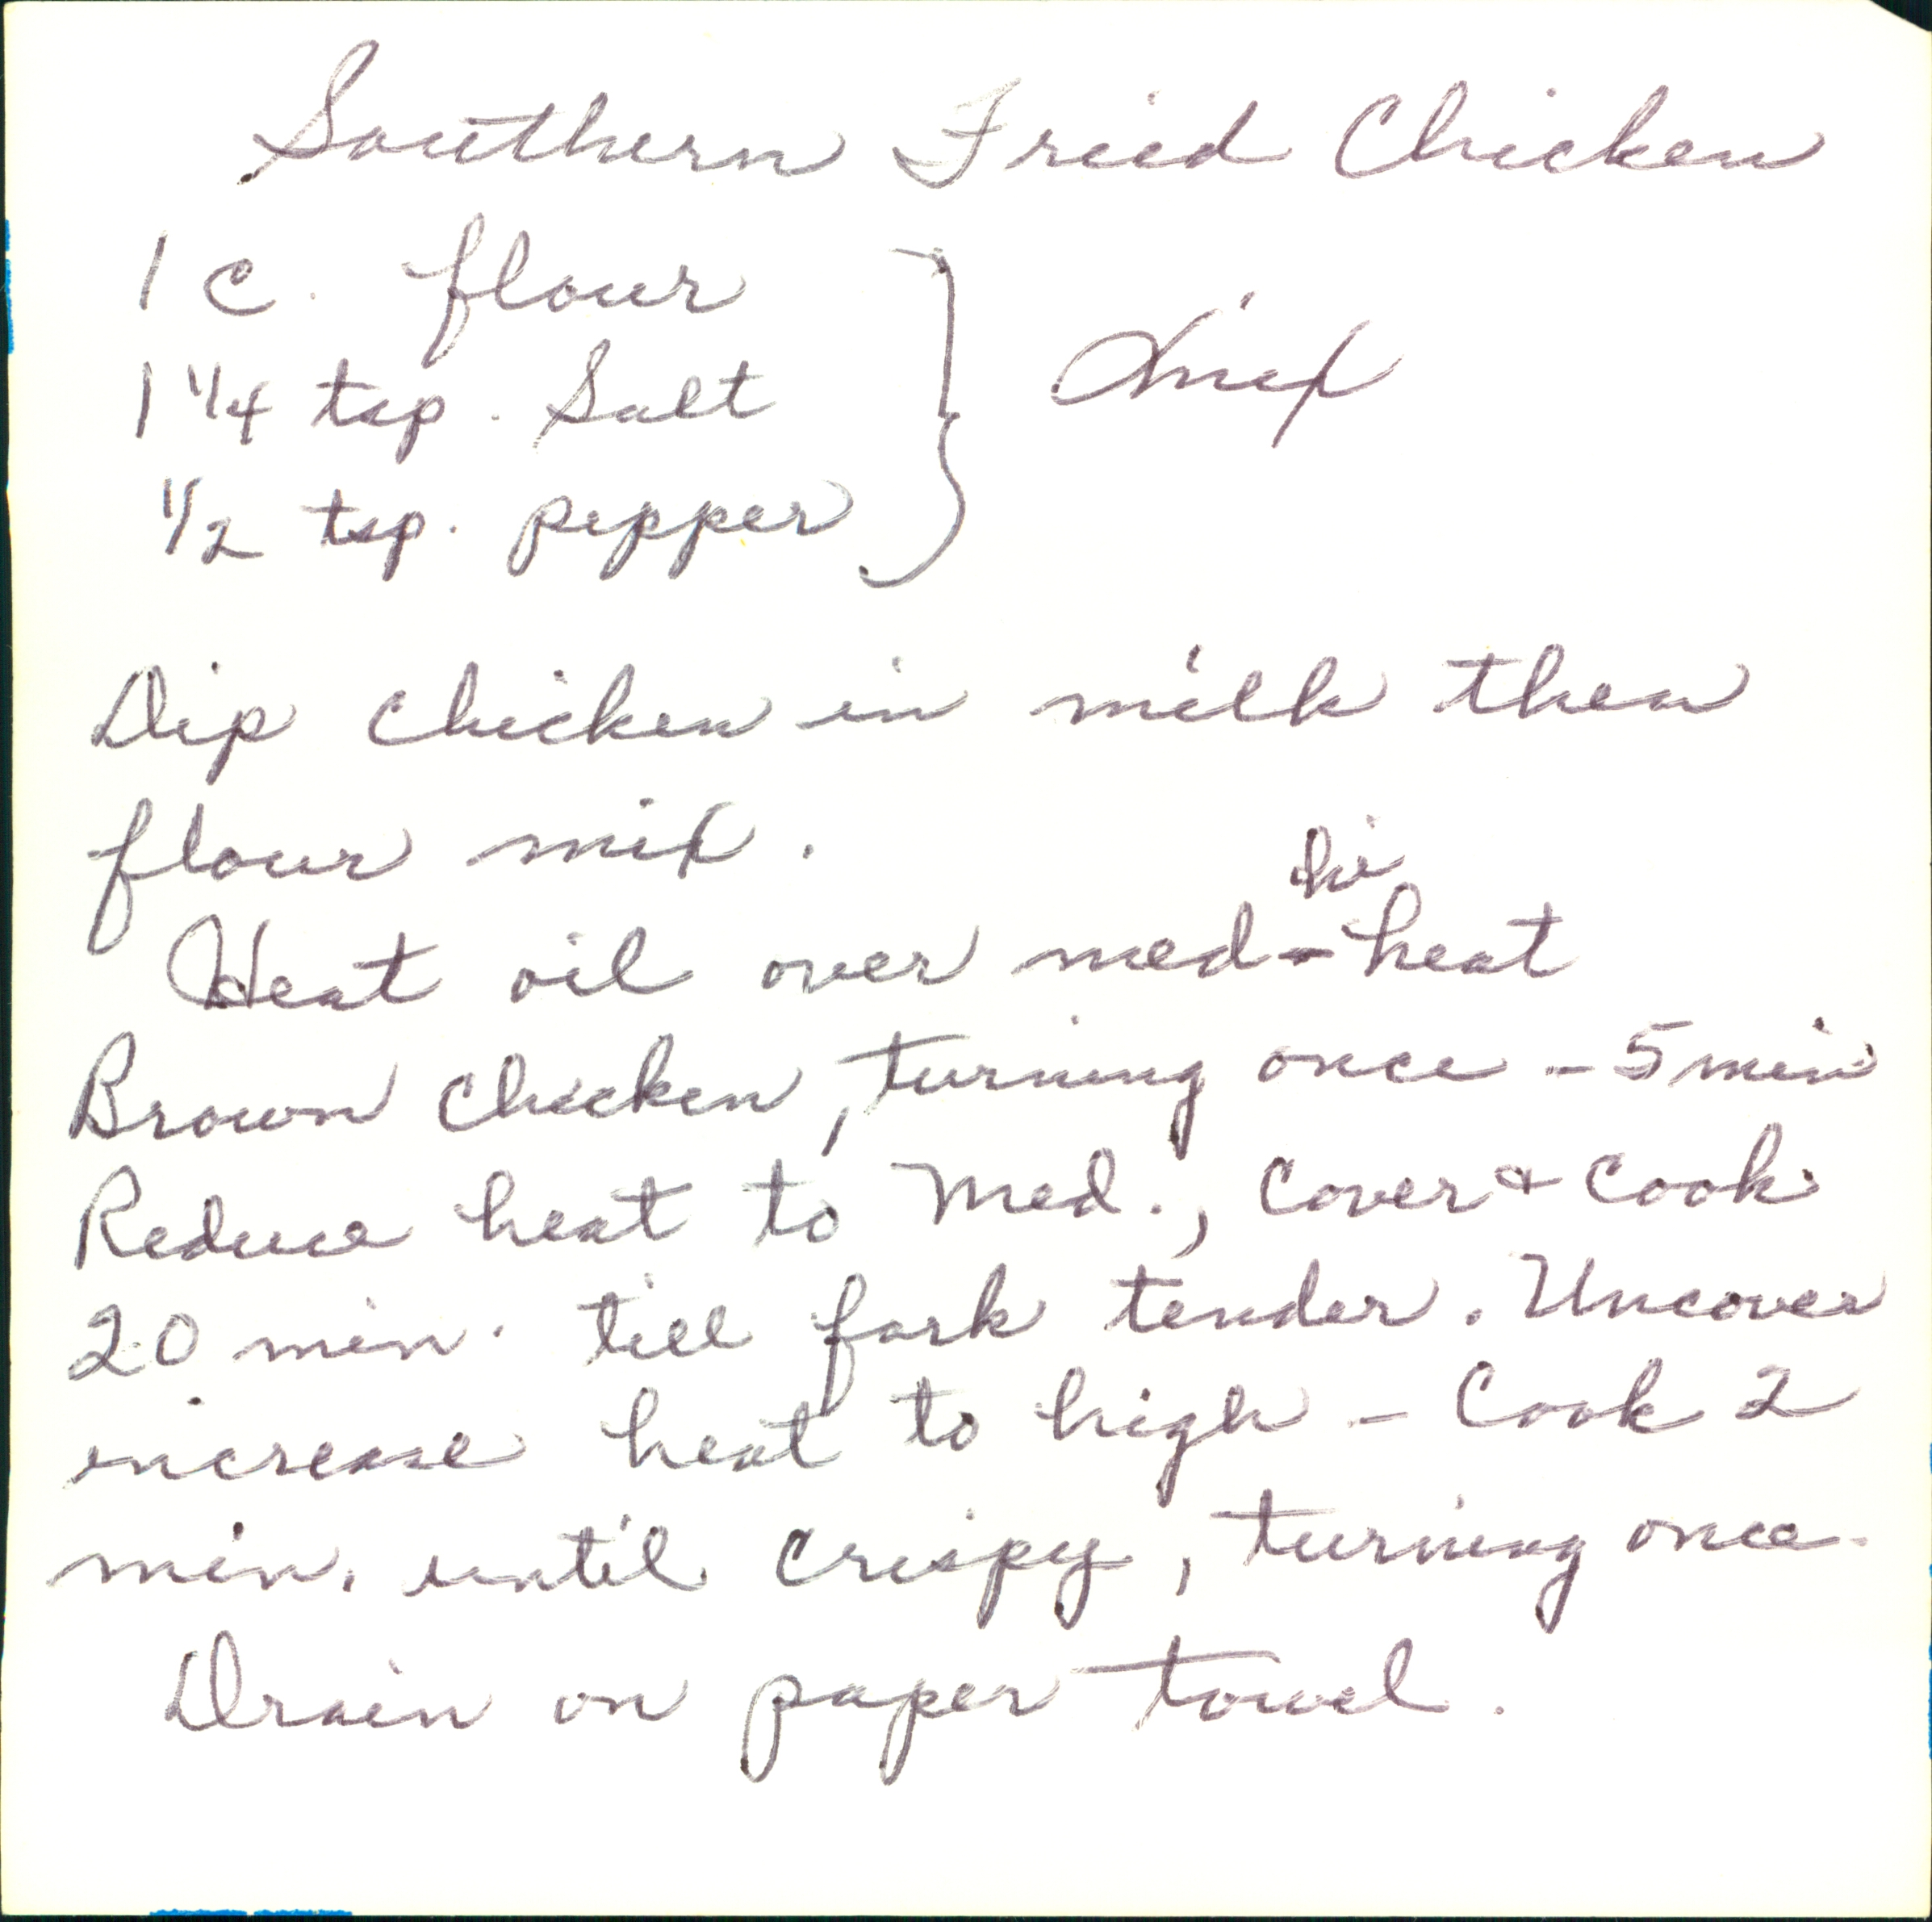 Southern Fried Chicken
1 c. flour
1 1/4 tsp. Salt
Mix
1/2 tsp. pepper
Dip chicken in milk then
flour mix.
Heat oil over med-hi heat
Brown chicken, turning once - 5 min
Reduce heat to Med., cover & cook
20 min. till fork tender. Uncover
increase heat to high - Cook 2
min. until crispy, turning once.
Drain on paper towel.